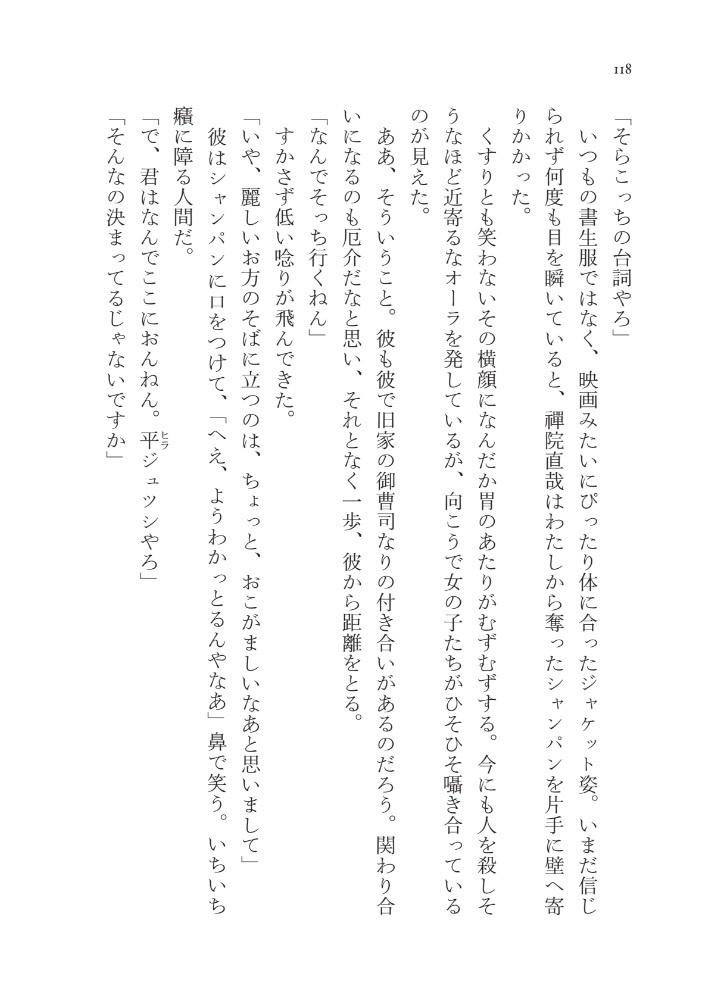 118
「そらこっちの台詞やろ」
　いつもの書生服ではなく、映画みたいにぴったり体に合ったジャケット姿。いまだ信じ
られず何度も目を瞬いていると、禪院直哉はわたしから奪ったシャンパンを片手に壁へ寄
りかかった。
　くすりとも笑わないその横顔になんだか胃のあたりがむずむずする。今にも人を殺しそ
うなほど近寄るなオーラを発しているが、向こうで女の子たちがひそひそ囁き合っている
のが見えた。
　ああ、そういうこと。彼も彼で旧家の御曹司なりの付き合いがあるのだろう。関わり合
いになるのも厄介だなと思い、それとなく一歩、彼から距離をとる。
「なんでそっち行くねん」
　すかさず低い唸りが飛んできた。
「いや、麗しいお方のそばに立つのは、ちょっと、おこがましいなあと思いまして」
　彼はシャンパンに口をつけて、「へえ、ようわかっとるんやなあ」鼻で笑う。いちいち
癪に障る人間だ。
「で、君はなんでここにおんねん。平ヒラジュツシやろ」
「そんなの決まってるじゃないですか」